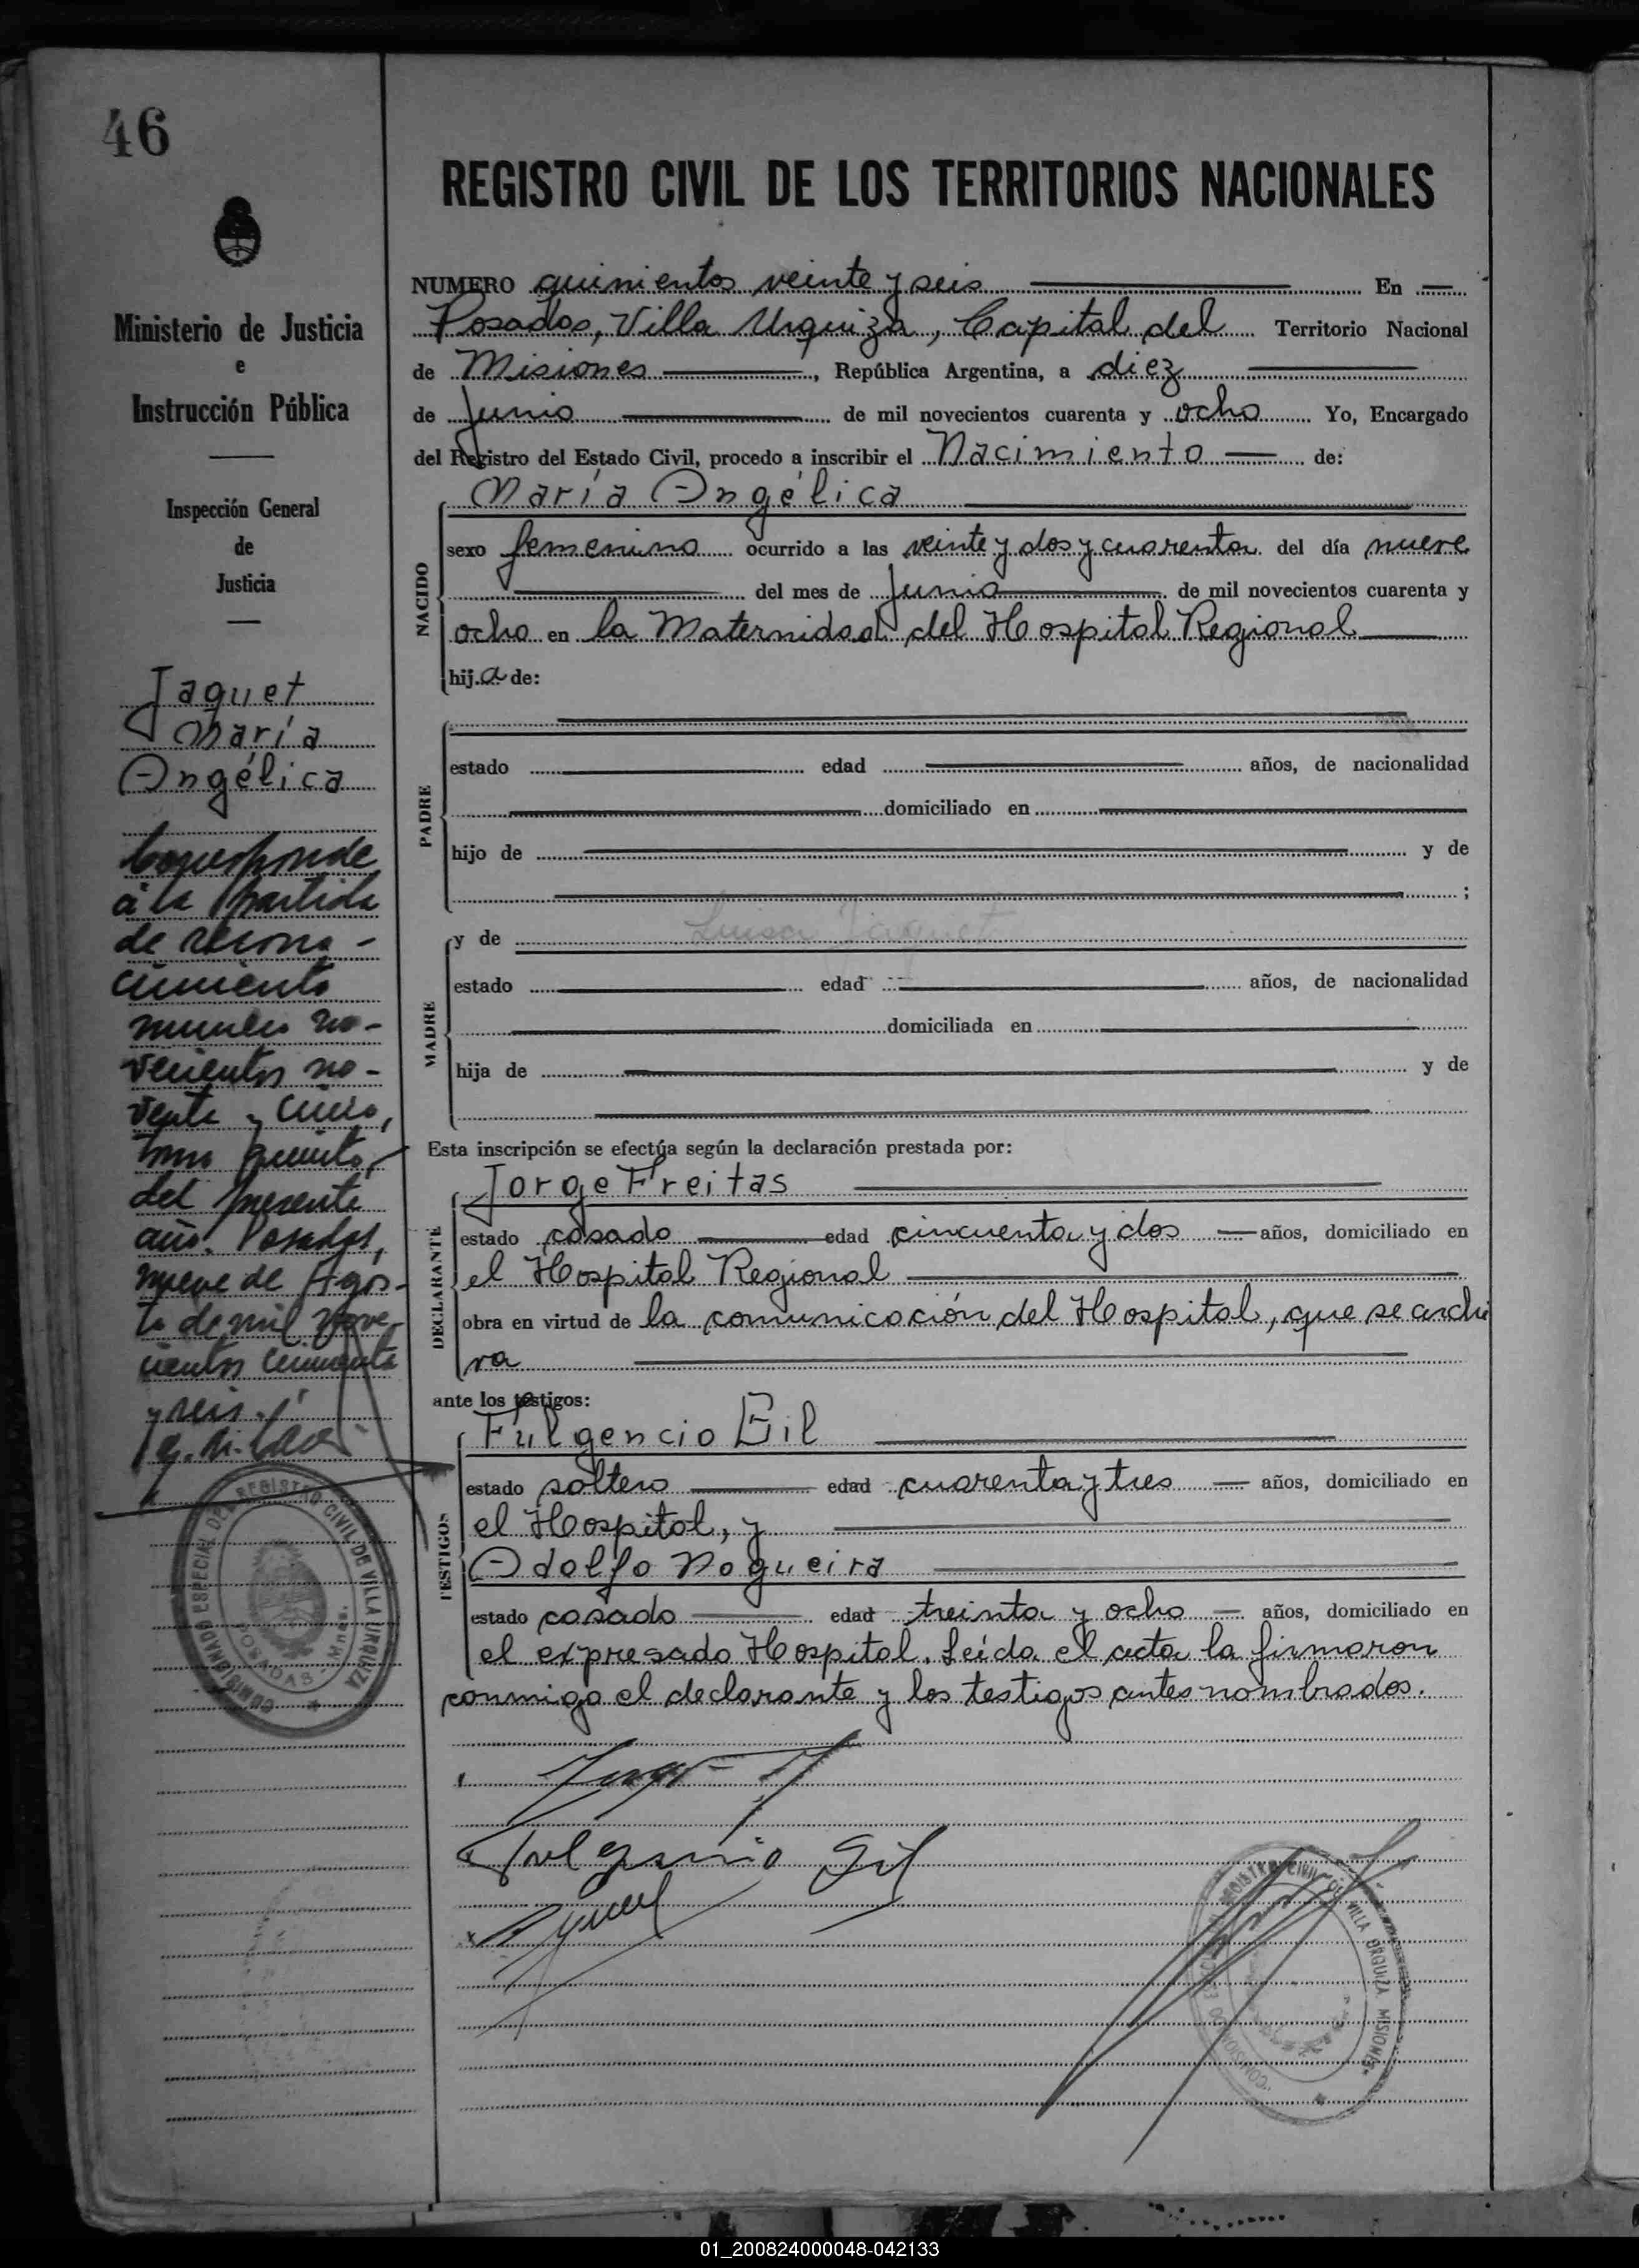 46
REGISTRO CIVIL DE LOS TERRITORIOS NACIONALES
Ministerio de Justicia
e
Instrucción Pública
Inspección General
de
Justicia
Jaquet
María
Angélica
Corresponde
a la partida
de recono-
cimiento
numero no-
vecientos no-
venta y cinco,
tomo quinto,
del presente
año. Posadas,
nueve de Agos-
to de mil nove-
cientos cincuenta
y seis.
COMISIONADO ESPECIAL DEL REGISTRO CIVIL DE VILLA URQUIZA
POSADAS Mnes.
NUMERO quinientos veinte y seis En
Posadas, Villa Urquiza, Capital del Territorio Nacional
de Misiones, República Argentina, a diez
de Junio de mil novecientos cuarenta y ocho Yo, Encargado
del Registro del Estado Civil, procedo a inscribir el Nacimiento de:
NACIDO
María Angélica
sexo femenino ocurrido a las veinte y dos y cuarenta del día nueve
del mes de Junio de mil novecientos cuarenta y
ocho en la Maternidad del Hospital Regional
hija de:
PADRE
estado edad años, de nacionalidad
domiciliado en
hijo de y de
;
MADRE
y de Luisa Jaquet
estado edad años, de nacionalidad
domiciliada en
hija de y de
Esta inscripción se efectúa según la declaración prestada por:
DECLARANTE
Jorge Freitas
estado casado edad cincuenta y dos años, domiciliado en
el Hospital Regional
obra en virtud de la comunicación del Hospital, que se archi
va
ante los testigos:
TESTIGOS
Fulgencio Gil
estado soltero edad cuarenta y tres años, domiciliado en
el Hospital, y
Adolfo Nogueira
estado casado edad treinta y ocho años, domiciliado en
el expresado Hospital. Leída el acta la firmaron
conmigo el declarante y los testigos antes nombrados.
Fulgencio Gil
REGISTRO CIVIL DE VILLA URQUIZA MISIONES
01_200824000048-042133